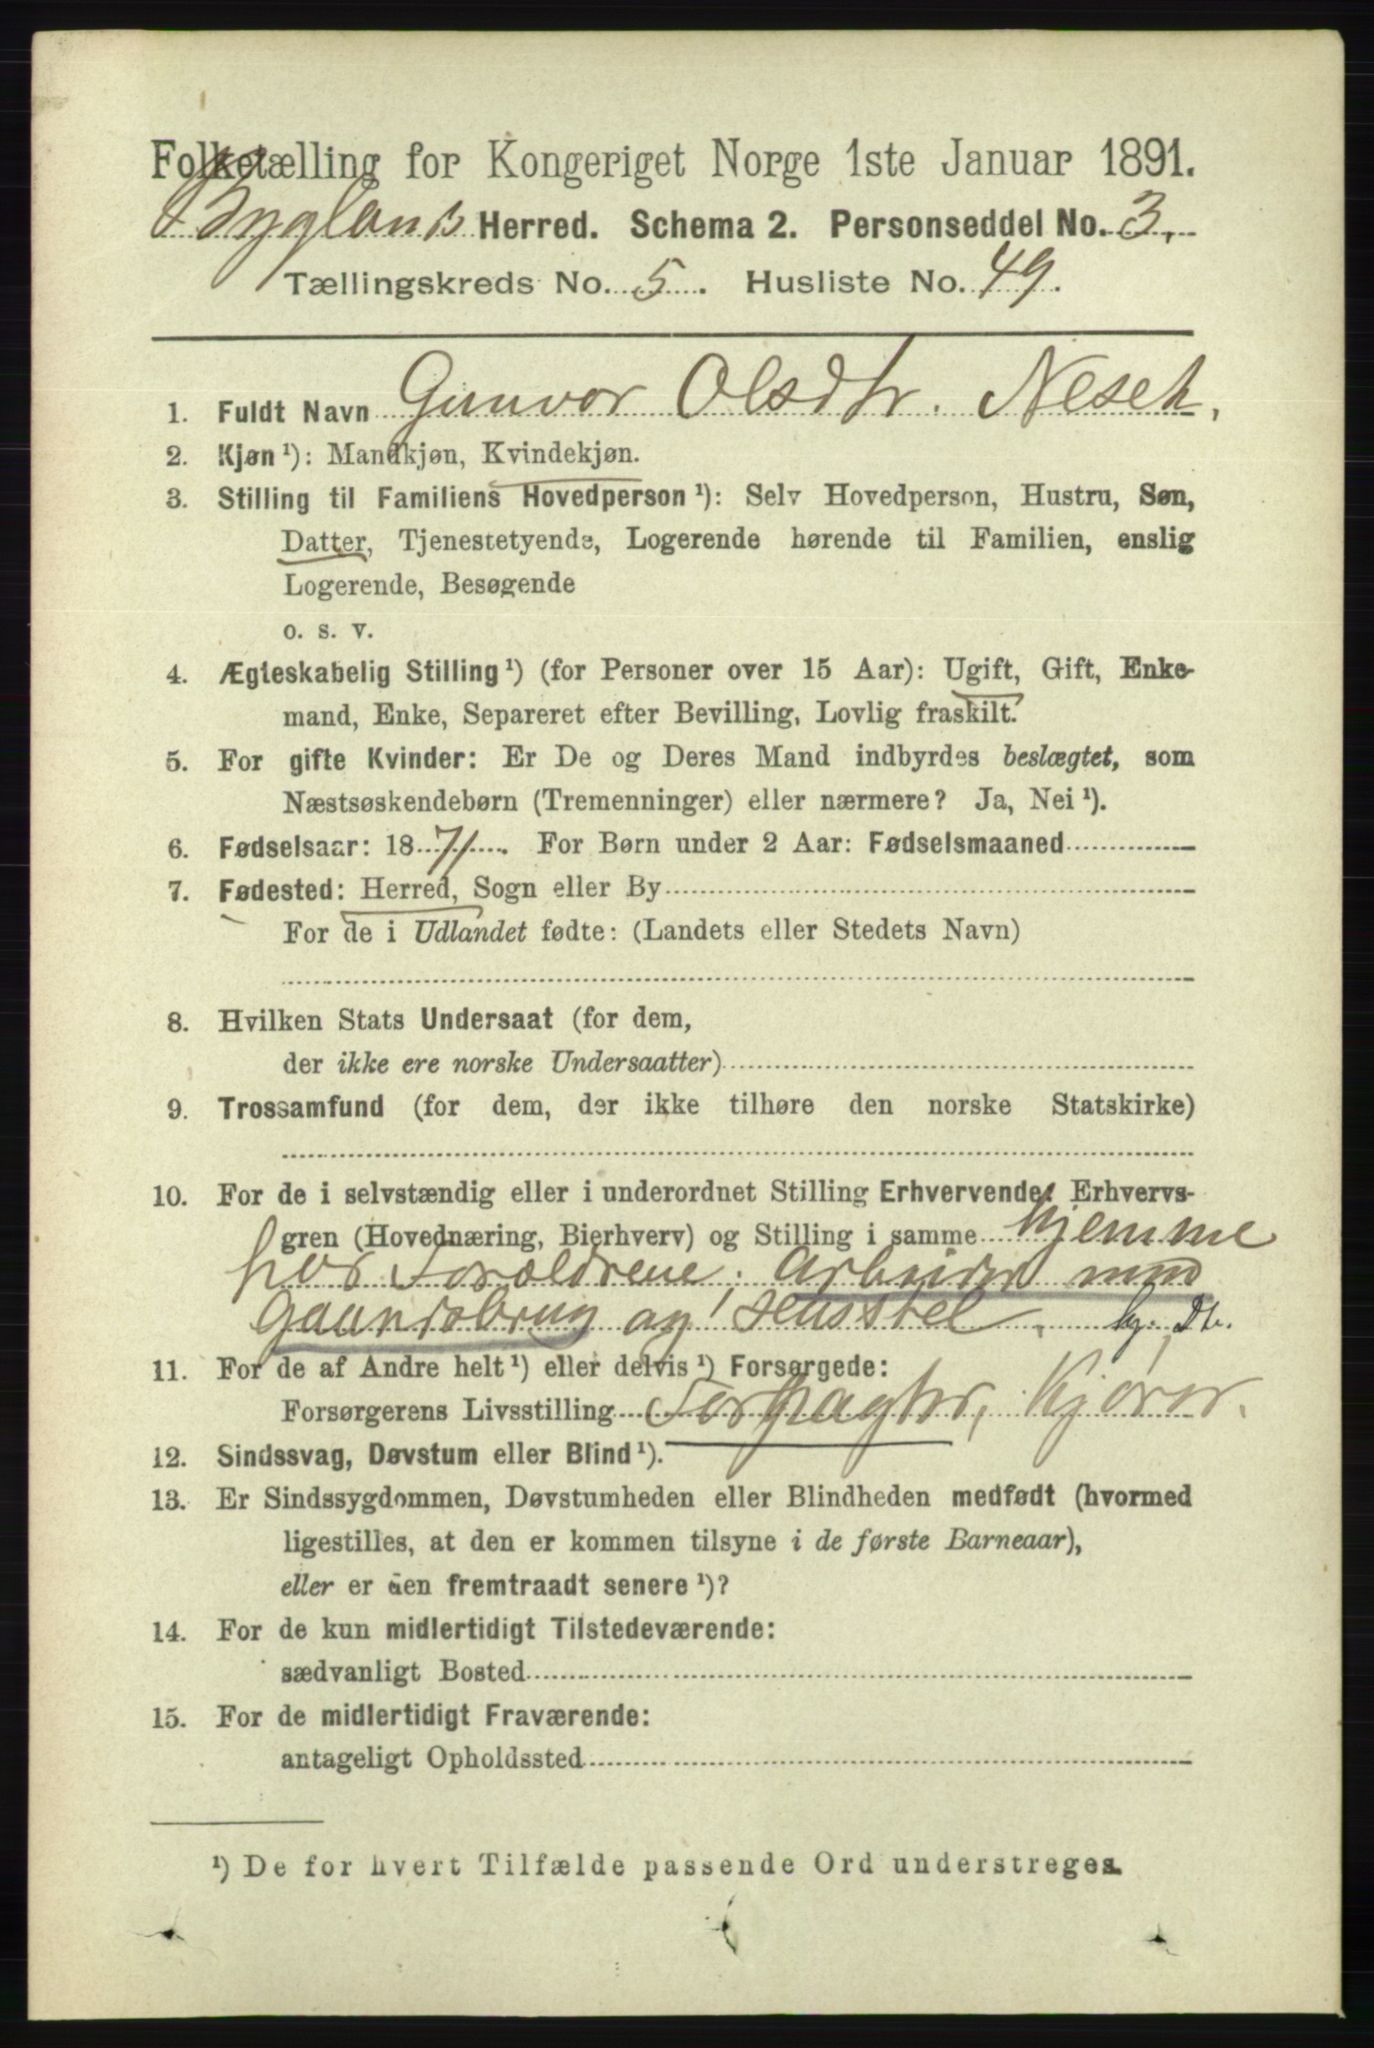 Folketælling for Kongeriget Norge 1ste Januar 1891.
Byglands Herred. Schema 2. Personseddel No. 3.
Tællingskreds No. 5. Husliste No. 49.
1. Fuldt Navn Gunvor Olsdtr. Neset.
2. Kjøn¹): Mandkjøn, Kvindekjøn.
3. Stilling til Familiens Hovedperson¹): Selv Hovedperson, Hustru, Søn,
Datter, Tjenestetyende, Logerende hørende til Familien, enslig
Logerende, Besøgende
o. s. v.
4. Ægteskabelig Stilling¹) (for Personer over 15 Aar): Ugift, Gift, Enke-
mand, Enke, Separeret efter Bevilling, Lovlig fraskilt.
5. For gifte Kvinder: Er De og Deres Mand indbyrdes beslægtet, som
Næstsøskendebørn (Tremenninger) eller nærmere? Ja, Nei¹).
6. Fødselsaar: 1871. For Børn under 2 Aar: Fødselsmaaned
7. Fødested: Herred, Sogn eller By
For de i Udlandet fødte: (Landets eller Stedets Navn)
8. Hvilken Stats Undersaat (for dem,
der ikke ere norske Undersaatter)
9. Trossamfund (for dem, der ikke tilhøre den norske Statskirke)
10. For de i selvstændig eller i underordnet Stilling Erhvervende: Erhvervs-
gren (Hovednæring, Bierhverv) og Stilling i samme hjemme
hos Forældrene. Arbeider med
Gaardsbrug og Husstel.
11. For de af Andre helt¹) eller delvis¹) Forsørgede:
Forsørgerens Livsstilling Forpagter, Kjører.
12. Sindssvag, Døvstum eller Blind¹).
13. Er Sindssygdommen, Døvstumheden eller Blindheden medfødt (hvormed
ligestilles, at den er kommen tilsyne i de første Barneaar),
eller er den fremtraadt senere¹)?
14. For de kun midlertidigt Tilstedeværende:
sædvanligt Bosted
15. For de midlertidigt Fraværende:
antageligt Opholdssted
¹) De for hvert Tilfælde passende Ord understreges.